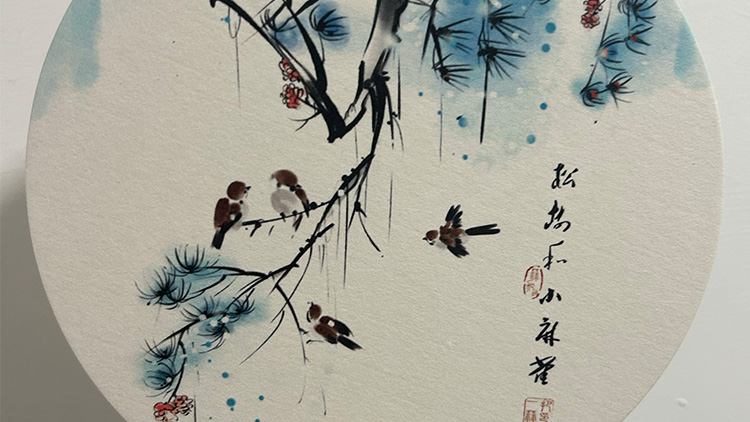 松树和小麻雀